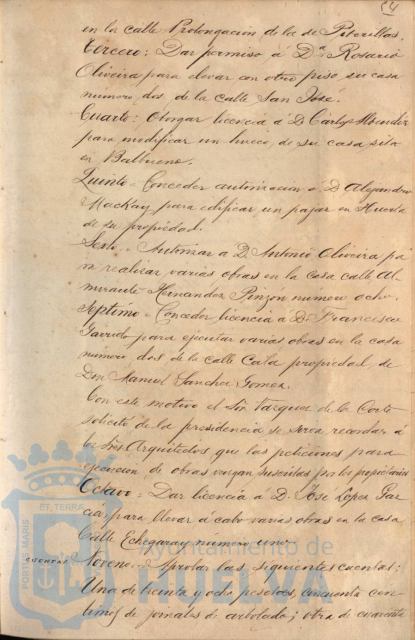 54
en la calle Prolongación de la de Puterillas.
Tercero: Dar permiso á Dª Rosario
Oliveira para elevar con otro piso, su casa
número dos, de la calle San José.
Cuarto: Otorgar licencia á D. Carlos Mendez
para modificar un hueco, de su casa sita
en Balbueno.
Quinto= Conceder autorizacion á D. Alejandro
Mackay, para edificar un pajar en Huerta
de su propiedad.
Sexto.= Autorizar á D. Antonio Oliveira pa
ra realizar varias obras en la casa calle Al-
mirante Hernandez Pinzón número ocho.
Septimo= Conceder licencia á D. Francisco
Garrido para ejecutar varias obras en la casa
número dos de la calle Cala propiedad de
Don Manuel Sanchez Gomez.
Con este motivo el Sor. Vazquez de la Corte
solicitó de la presidencia se sirva recordar á
los Sres Arquitectos que las peticiones para
ejecucion de obras vengan suscritas por los propietarios
Octavo= Dar licencia á D. José Lopez Gar-
cia, para llevar á cabo varias obras en la casa
Calle Echegaray número uno.
cuentas
Noveno= Aprobar las siguientes cuentas:
Una de treinta y ocho pesetas, cincuenta cen-
timos de jornales de arbolado; otra de cuarenta
PORTUS MARIS
ET TERRAE
Ayuntamiento de
HUELVA